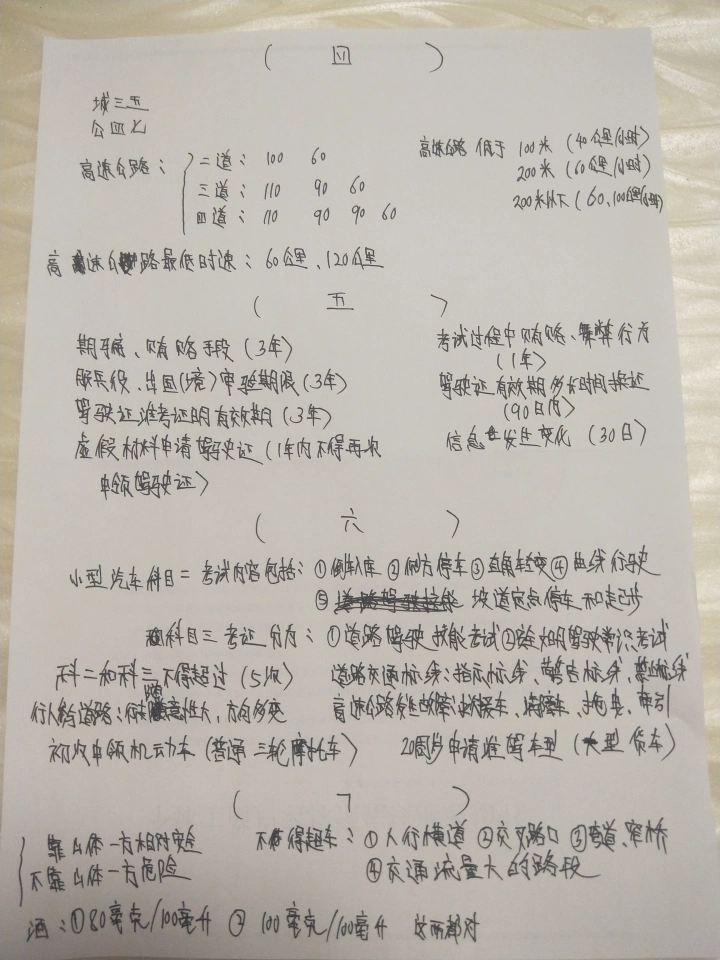 （ 四 ）
城三五
公四七
高速公路： 二道： 100 60
三道： 110 90 60
四道： 110 90 90 60
高速公路 低于 100米（40公里/小时）
200米（60公里/小时）
200米以下（60、100公里/小时）
高速公路最低时速：60公里、120公里
（ 五 ）
期瞒、贿赂手段（3年）
服兵役、出国（境）审验期限（3年）
驾驶证准考证明有效期（3年）
虚假材料申请驾驶证（1年内不得再次
申领驾驶证）
考试过程中贿赂、舞弊行为
（1年）
驾驶证有效期多长时间换证
（90日内）
信息发生变化（30日）
（ 六 ）
小型汽车科目二考试内容包括：①倒车入库 ②侧方停车 ③直角转弯 ④曲线行驶
⑤ 坡道定点停车和起步
科目三考证分为：①道路驾驶技能考试 ②安全文明驾驶常识考试
科二和科三不得超过（5次）
道路交通标线：指示标线、警告标线、禁止标线
行人参与道路：行走随意性大，方向多变
高速公路发生故障：救援车、清障车、拖曳、牵引
初次申领机动车（普通三轮摩托车）
20周岁申请准驾车型（大型货车）
（ 7 ）
靠山体一方相对安全
不靠山体一方危险
不得超车：①人行横道 ②交叉路口 ③弯道、窄桥
④交通流量大的路段
酒：①80毫克/100毫升 ② 100毫克/100毫升 这两都对